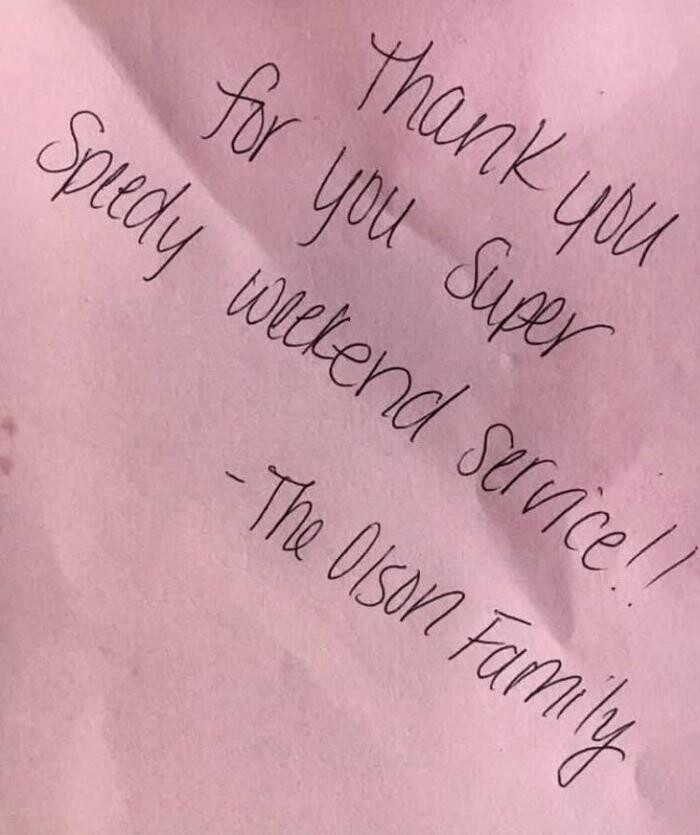 Thank you
for you Super
Speedy weekend service!!
-The Olson Family